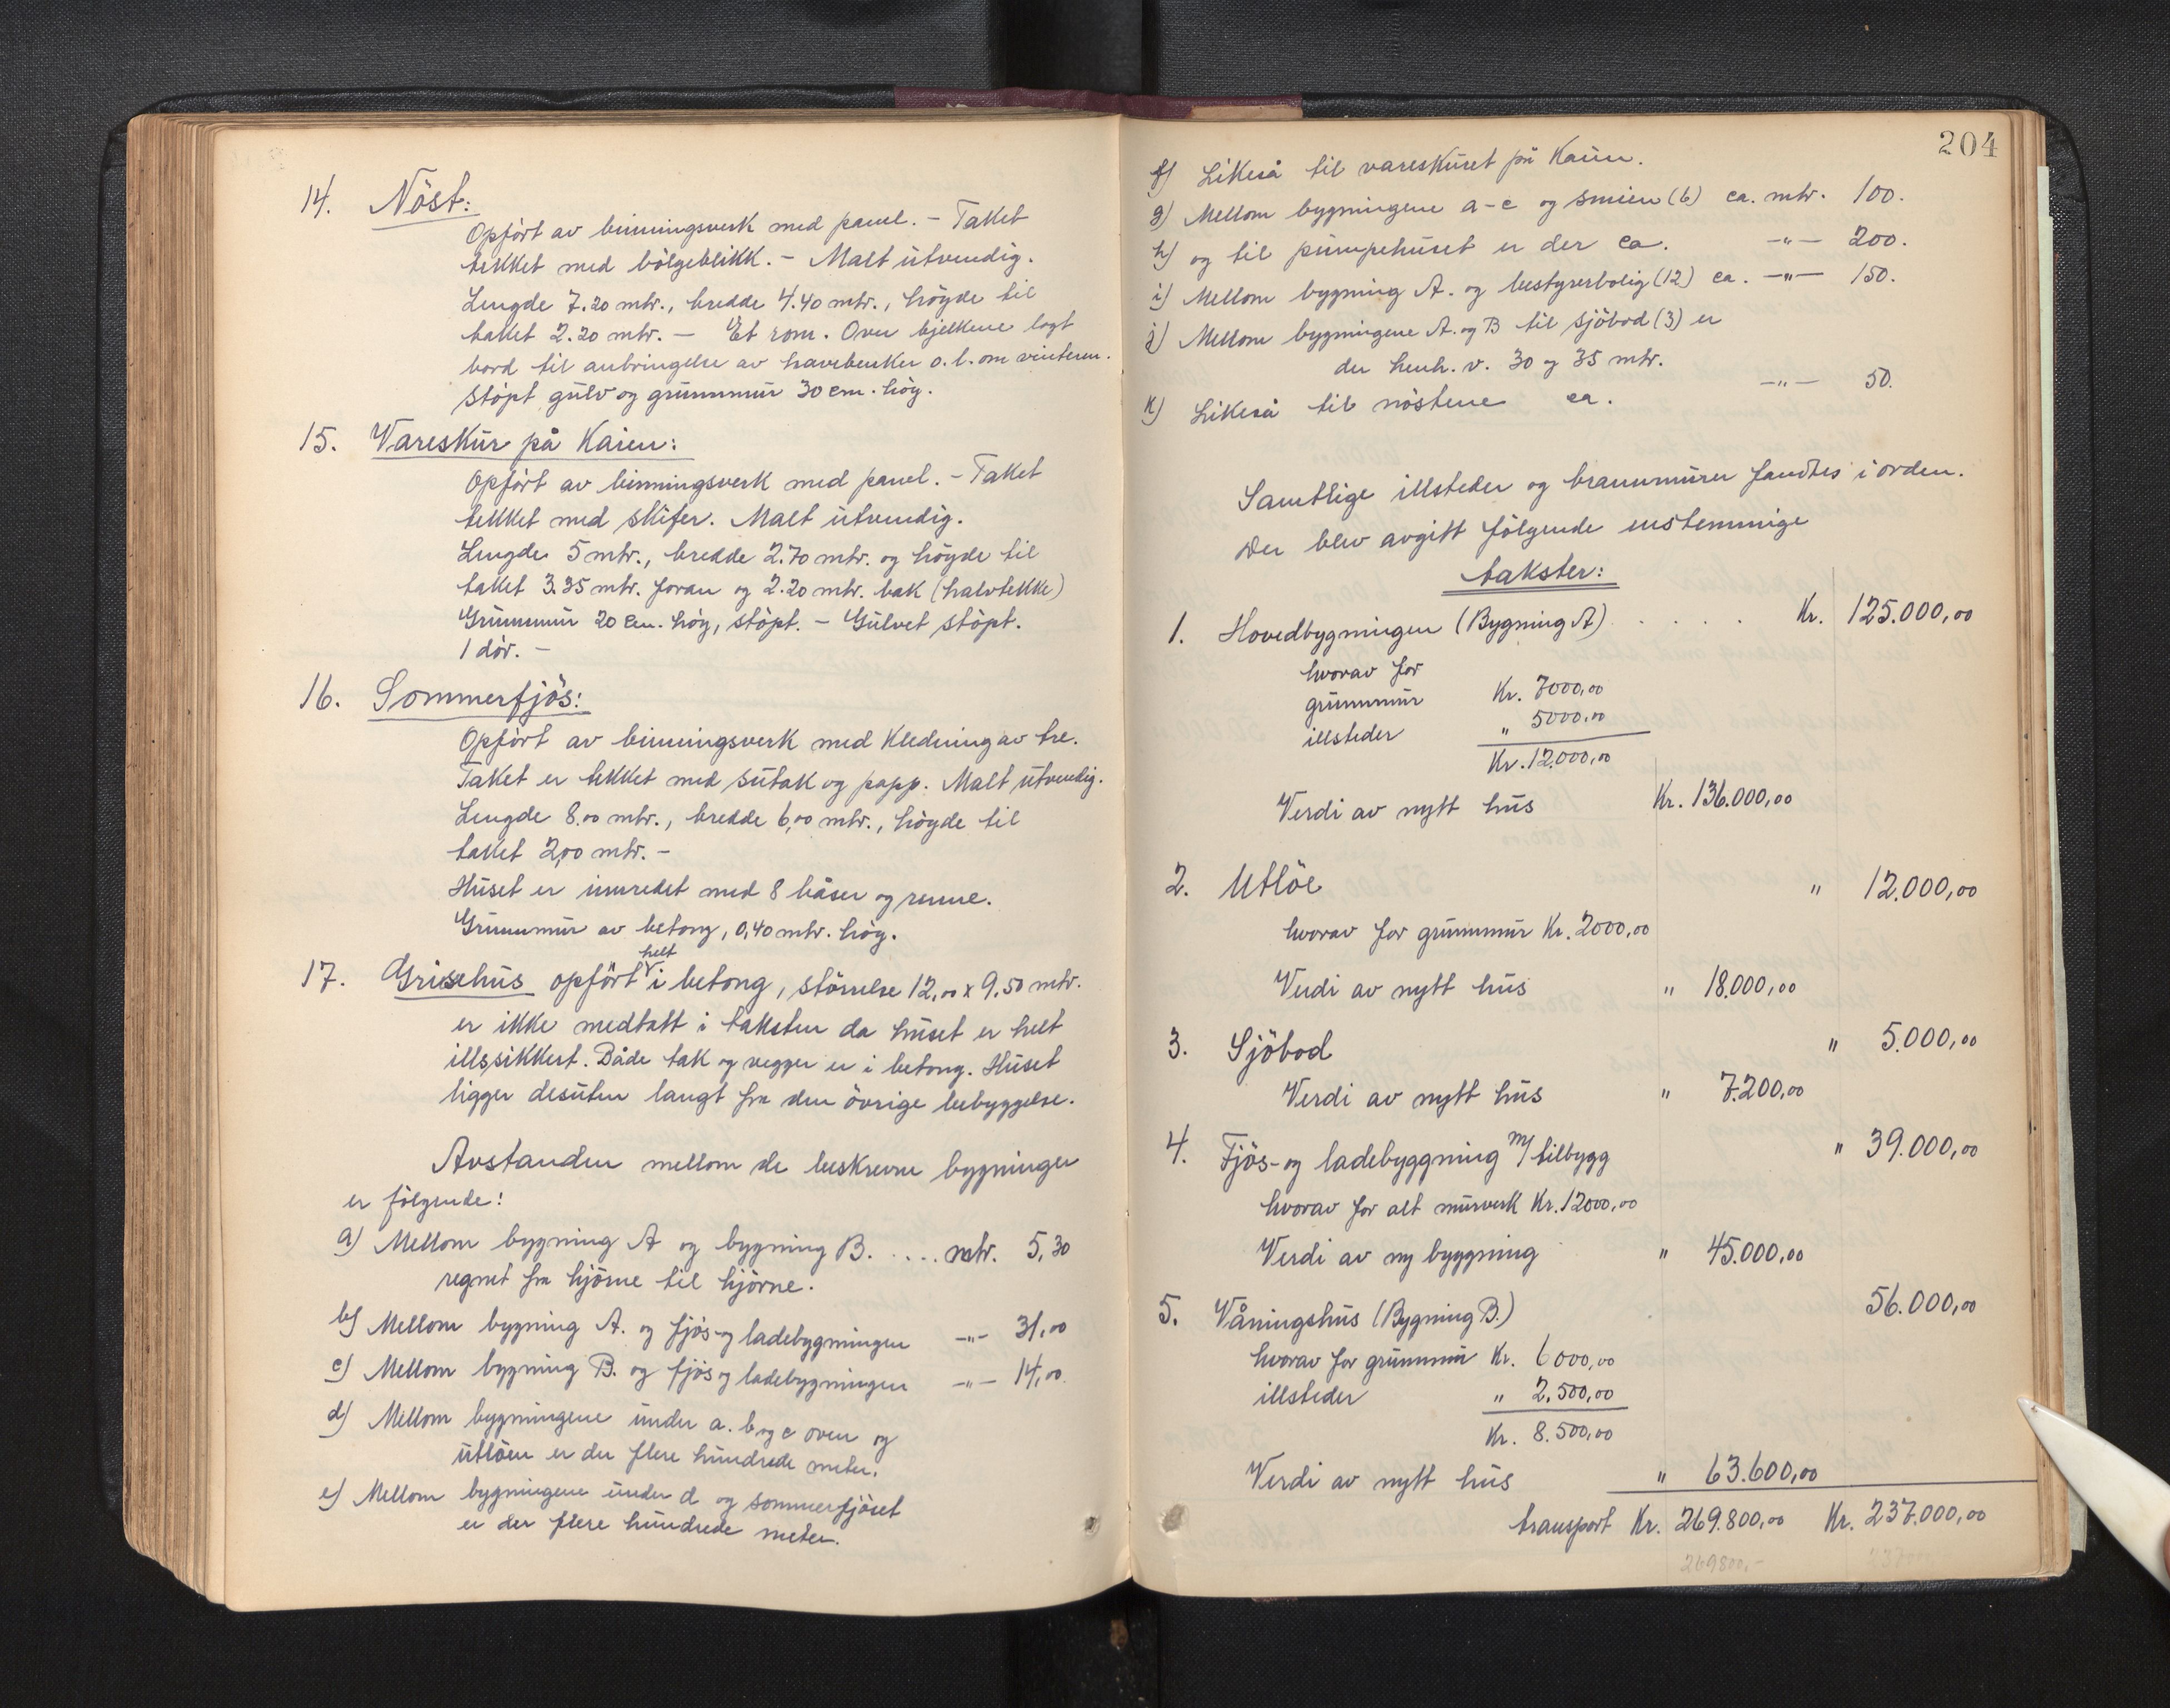 14. Nöst:
Opført av binningsverk med panel. – Taket
tekket med bölgeblikk. – Malt utvendig.
Lengde 7.20 mtr., bredde 4.40 mtr., höyde til
taket 2.20 mtr. – Et rom. Over bjelkene lagt
bord til anbringelse av havebenker o.l. om vinteren.
Stöpt gulv og grunnmur 30 cm. höy.
15. Vareskur på Kaien:
Opfört av binningsverk med panel. – Taket
tekket med skifer. Malt utvendig.
Lengde 5 mtr., bredde 2.70 mtr. og höyde til
taket 3.35 mtr. foran og 2.20 mtr. bak (halvtekke)
Grunnmur 20 cm. höy, stöpt. – Gulvet stöpt.
1 dör. –
16. Sommerfjös:
Opfört av binningsverk med Kledning av tre.
Taket er tekket med sutak og papp. Malt utvendig.
Lengde 8.00 mtr., bredde 6,00 mtr., höyde til
taket 2,00 mtr. –
Huset er innredet med 8 båser og renne.
Grunnmur av betong, 0,40 mtr. höy.
17. Grisehus opfört helt i betong, störrelse 12,00 x 9,50 mtr.
er ikke medtatt i taksten da huset er helt
illssikkert. Både tak og vegger er i betong. Huset
ligger desuten langt fra den övrige bebyggelse.
Avstanden mellom de beskrevne bygninger
er fölgende:
a) Mellom bygning A og bygning B. .... mtr. 5,30
regnet fra hjörne til hjörne.
b) Mellom bygning A. og fjös og ladebygningen –"– 31,00
c) Mellom bygning B. og fjös og ladebygningen –"– 14,00
d) Mellom bygningene under a. b og c oven og
utlöen er der flere hundrede meter.
e) Mellom bygningene under d og sommerfjöset
er der flere hundrede meter.
204
f) Likeså til vareskuret på Kaien.
g) Mellom bygningene a-c og smien (6) ca. mtr. 100.
h) og til pumpehuset er der ca. –"– 200.
i) Mellom bygning A. og bestyrerbolig (12) ca. –"– 150.
j) Mellom bygningene A. og B til sjöbod (3) er
der henh. v. 30 og 35 mtr.
k) Likeså til nöstene ca. –"– 50.
Samtlige illsteder og brannmurer fandtes i orden.
Der blev avgitt fölgende enstemmige
takster:
1. Hovedbygningen (Bygning A) . . . . . Kr. 125.000,00
hvorav for
grunnmur Kr. 7000,00
illsteder " 5000,00
Kr. 12.000,00
Verdi av nytt hus Kr. 136.000,00
2. Utlöe " 12.000,00
hvorav for grunnmur Kr. 2000,00
Verdi av nytt hus " 18.000,00
3. Sjöbod " 5.000,00
Verdi av nytt hus " 7.200,00
4. Fjös- og ladebyggning m/ tilbygg " 39.000,00
hvorav for alt murverk Kr. 12000,00
Verdi av ny byggning " 45.000,00
5. Våningshus (Bygning B.) 56.000,00
hvorav for grunnmur Kr. 6000,00
illsteder " 2.500,00
Kr. 8.500,00
Verdi av nytt hus " 63.600,00
transport Kr. 269.800,00 Kr. 237.000,00
269800,-